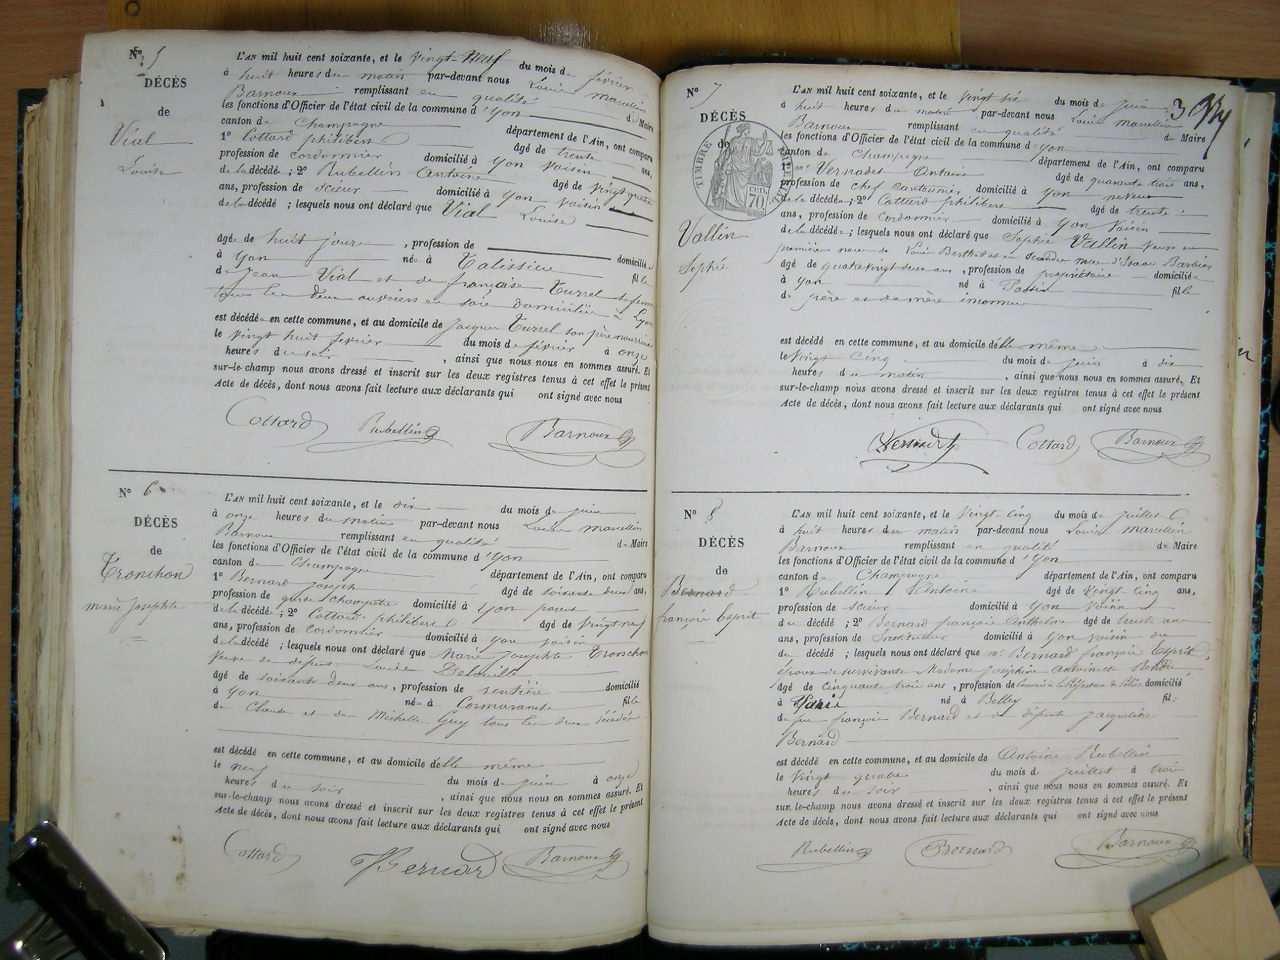 N° 5
DÉCÈS
de
Vial
Louise
L'AN mil huit cent soixante, et le vingt-neuf du mois de février
à huit heures du matin par-devant nous Louis Marcellin
Barnoux remplissant en qualité de Maire
les fonctions d'Officier de l'état civil de la commune d'Yon
canton de Champagne département de l'Ain, ont comparu
1° Cottard philibert âgé de trente ans,
profession de cordonnier domicilié à Yon voisin
de la décédée; 2° Rubellin Antoine âgé de vingt quatre
ans, profession de scieur domicilié à Yon voisin
de la décédée; lesquels nous ont déclaré que Vial Louise
âgée de huit jours, profession de domiciliée
à Yon née à Talissieu fille
de Jean Vial et de françoise Turrel sa femme
tous les deux ouvriers en soie domiciliés à Lyon
est décédée en cette commune, et au domicile de Jacques Turrel son père nourricier
le vingt huit février du mois de février à onze
heures du soir, ainsi que nous nous en sommes assuré. Et
sur-le-champ nous avons dressé et inscrit sur les deux registres tenus à cet effet le présent
Acte de décès, dont nous avons fait lecture aux déclarants qui ont signé avec nous
Cottard Rubellin Barnoux
N° 6
DÉCÈS
de
Tronchon
marie Josephte
L'AN mil huit cent soixante, et le dix du mois de juin
à onze heures du matin par-devant nous Louis Marcellin
Barnoux remplissant en qualité de Maire
les fonctions d'Officier de l'état civil de la commune d'Yon
canton de Champagne département de l'Ain, ont comparu
1° Bernard Joseph âgé de soixante deux ans,
profession de garde champêtre domicilié à Yon parent
de la décédée; 2° Cottard philibert âgé de vingt neuf
ans, profession de cordonnier domicilié à Yon voisin
de la décédée; lesquels nous ont déclaré que Marie Josephte Tronchon
veuve de défunt Louis
âgée de soixante deux ans, profession de rentière domiciliée
à Yon née à Cormaranche fille
de Claude et de Michelle Guy tous les deux décédés
est décédé en cette commune, et au domicile d'elle même
le neuf du mois de juin à onze
heures du soir, ainsi que nous nous en sommes assuré. Et
sur-le-champ nous avons dressé et inscrit sur les deux registres tenus à cet effet le présent
Acte de décès, dont nous avons fait lecture aux déclarants qui ont signé avec nous
Cottard Bernard Barnoux
N° 7
3
DÉCÈS
de
TIMBRE IMPÉRIAL
70
Vallin
Sophie
L'AN mil huit cent soixante, et le vingt six du mois de juin
à huit heures du matin par-devant nous Louis Marcellin
Barnoux remplissant en qualité de Maire
les fonctions d'Officier de l'état civil de la commune d'Yon
canton de Champagne département de l'Ain, ont comparu
1° Antoine âgé de quarante trois ans,
profession de chef cantonnier domicilié à Yon neveu
de la décédée; 2° Cottard philibert âgé de trente
ans, profession de cordonnier domicilié à Yon voisin
de la décédée; lesquels nous ont déclaré que Sophie Vallin veuve en
première noce de Louis et en seconde noce d'Isaac Barbier
âgée de quatrevingt deux ans, profession de propriétaire domiciliée
à Yon né à Paris fille
de père et de mère inconnus
est décédé en cette commune, et au domicile d'elle même
le vingt cinq du mois de juin à dix
heures du matin, ainsi que nous nous en sommes assuré. Et
sur-le-champ nous avons dressé et inscrit sur les deux registres tenus à cet effet le présent
Acte de décès, dont nous avons fait lecture aux déclarants qui ont signé avec nous
Cottard Barnoux
N° 8
DÉCÈS
de
Bernard
françois Esprit
L'AN mil huit cent soixante, et le vingt cinq du mois de juillet
à huit heures du matin par-devant nous Louis Marcellin
Barnoux remplissant en qualité de Maire
les fonctions d'Officier de l'état civil de la commune d'Yon
canton de Champagne département de l'Ain, ont comparu
1° Rubellin Antoine âgé de vingt cinq ans,
profession de scieur domicilié à Yon voisin
du décédé; 2° Bernard françois Anthelme âgé de trente un
ans, profession de Instituteur domicilié à Yon voisin du
du décédé; lesquels nous ont déclaré que Mr Bernard françois Esprit,
époux de survivante Madame Joséphine Antoinette
âgé de cinquante trois ans, profession de domicilié
à Paris né à Belley fils
de feu françois Bernard et de défunte Jacqueline
Bernard
est décédé en cette commune, et au domicile de Antoine Rubellin
le vingt quatre du mois de juillet à trois
heures du soir, ainsi que nous nous en sommes assuré. Et
sur-le-champ nous avons dressé et inscrit sur les deux registres tenus à cet effet le présent
Acte de décès, dont nous avons fait lecture aux déclarants qui ont signé avec nous
Rubellin Bernard Barnoux